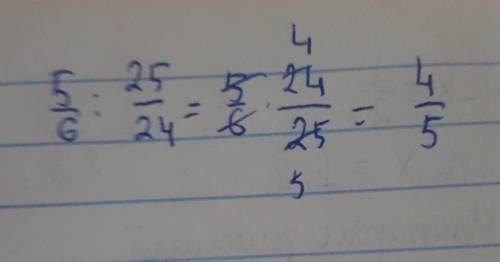 5/6 : 25/24 = 5/6 · 24/25 = 4/5
4
5